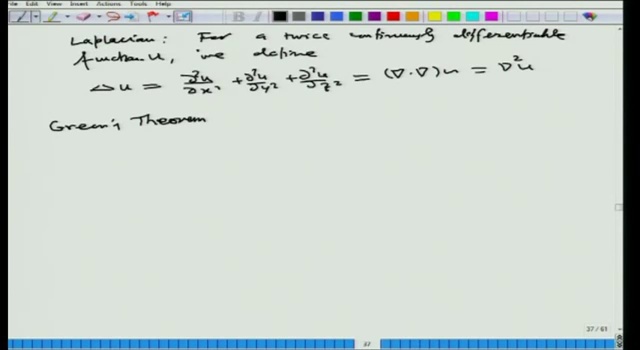 File Edit View Insert Actions Tools Help
Laplacian: For a twice continuously differentiable
function u, we define
Δu = ∂²u/∂x² + ∂²u/∂y² + ∂²u/∂z² = (∇·∇)u = ∇²u
Green's Theorem
37 / 61
37